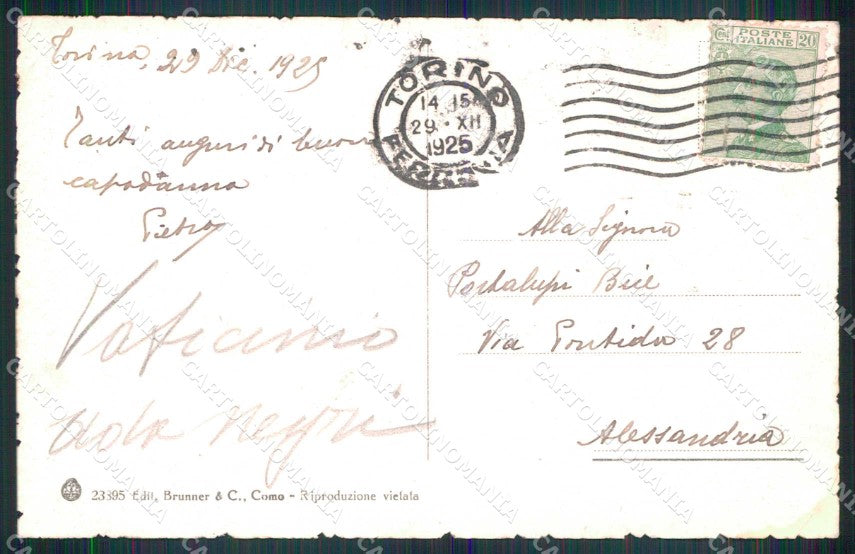 Torino, 29 Dic. 1925
Tanti auguri di buon
capodanno
Pietro
Vaticinio
ada negri
23395 Edit. Brunner & C., Como - Riproduzione vietata
TORINO
14 15
29 · XII
1925
FERROVIA
POSTE
ITALIANE 20
Alla Signora
Portalupi Bice
Via Pontida 28
Alessandria
CARTOLINOMANIA